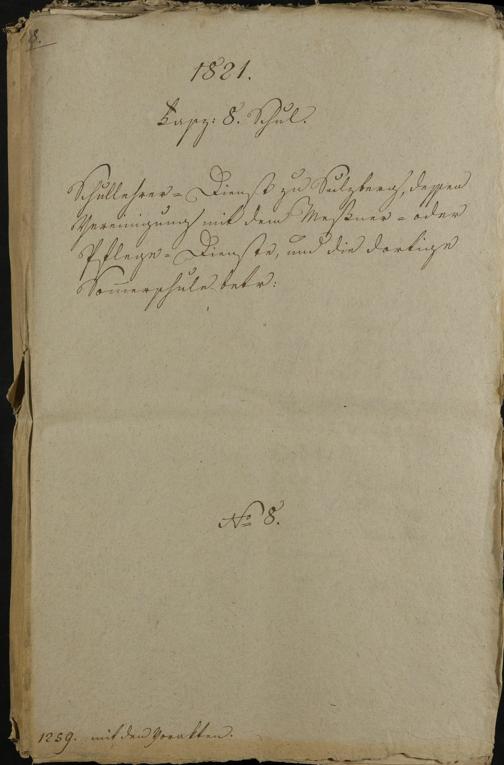 8.
1821.
Kapz: 8. Schul.
Schullehrer-Dienst zu Sulzberg, dessen
Vereinigung mit dem Meßner- oder
Pflege-Dienste, und die dortige
Sommerschule betr:
No 8.
1259. mit den Vorakten.